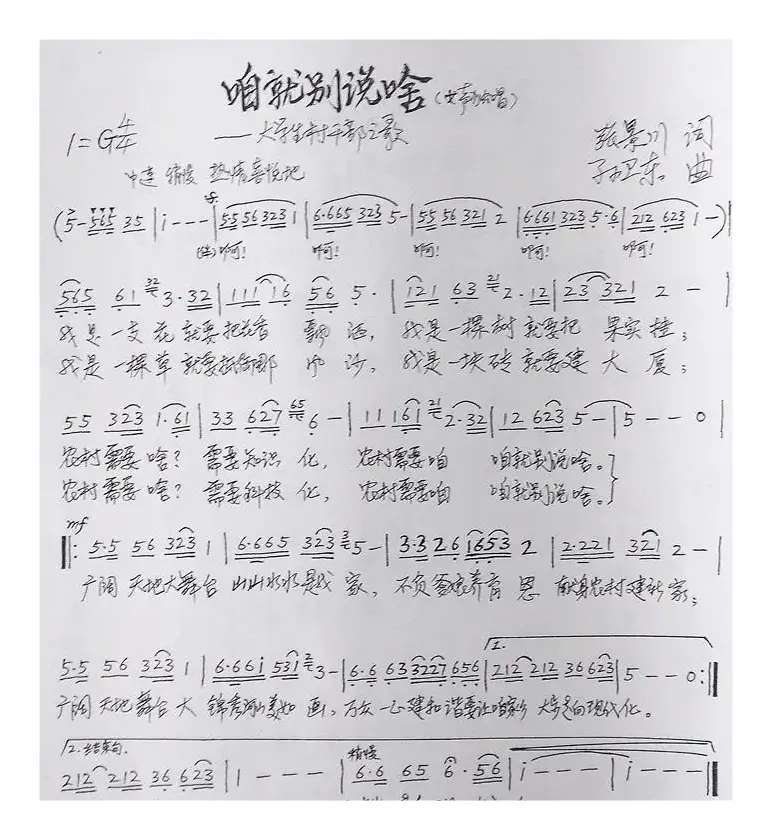 咱就别说啥(女声小合唱)
1=G 4/4 ——大学生村干部之歌 张景川 词
中速 稍慢 热情喜悦地 孙卫东 曲
(5- 565 35 | i--- | 55 56 323 1 | 6·665 323 5- | 55 56 321 2 | 6·661 323 5·6 | 212 623 1-) |
啊! 啊! 啊! 啊! 啊!
565 61 32 3·32 | 111 16 56 5· | 121 63 21 2·12 | 23 321 2 - |
我是一支花就要把花香 飘洒, 我是一棵树就要把 果实挂;
我是一棵草就要抵御那 风沙, 我是一块砖就要建 大厦;
55 323 1·61 | 33 627 65 6- | 11 161 21 2·32 | 12 623 5- | 5--0 |
农村需要啥? 需要知识化, 农村需要咱 咱就别说啥。
农村需要啥? 需要科技化, 农村需要咱 咱就别说啥。
mf
‖: 5·5 56 323 1 | 6·665 323 3 5- | 3·3 26 1653 2 | 2·221 321 2- |
广阔天地大舞台 山山水水是我家, 不负爹娘养育恩 献身农村建新家;
1.
5·5 56 323 1 | 6·66i 53i 2 3- | 6·6 63 3227 656 | 212 212 36 623 | 5--0 :‖
广阔天地舞台大 锦秀河山美如画, 万众一心建和谐要让咱家乡 大步走向现代化。
2.结束句. 稍慢
212 212 36 623 | 1--- | 6·6 65 6·56 | i--- | i--- ‖